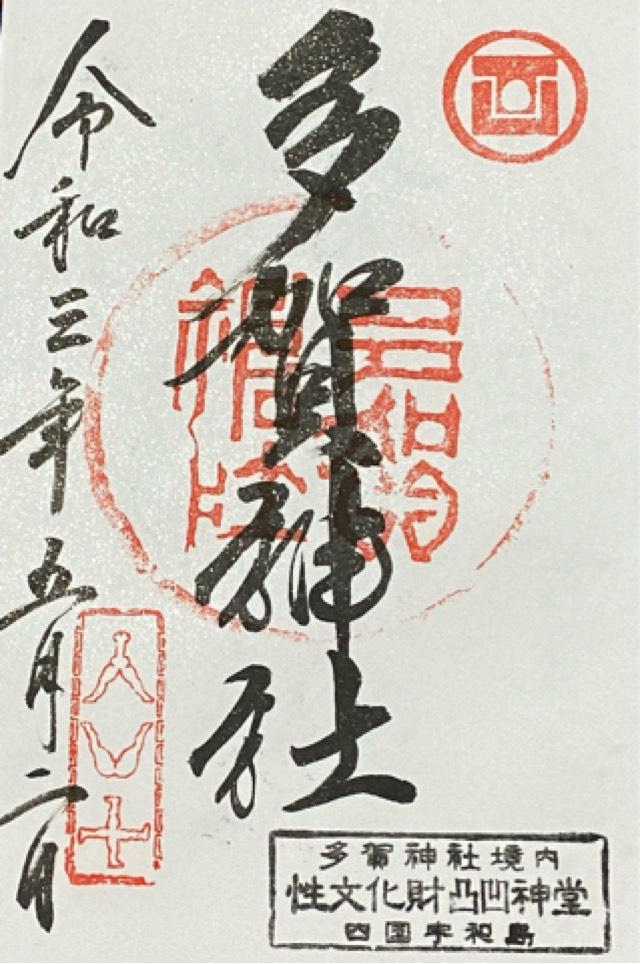 多賀神社
令和三年五月二日
多賀神社境内
性文化財凸凹神堂
四国宇和島